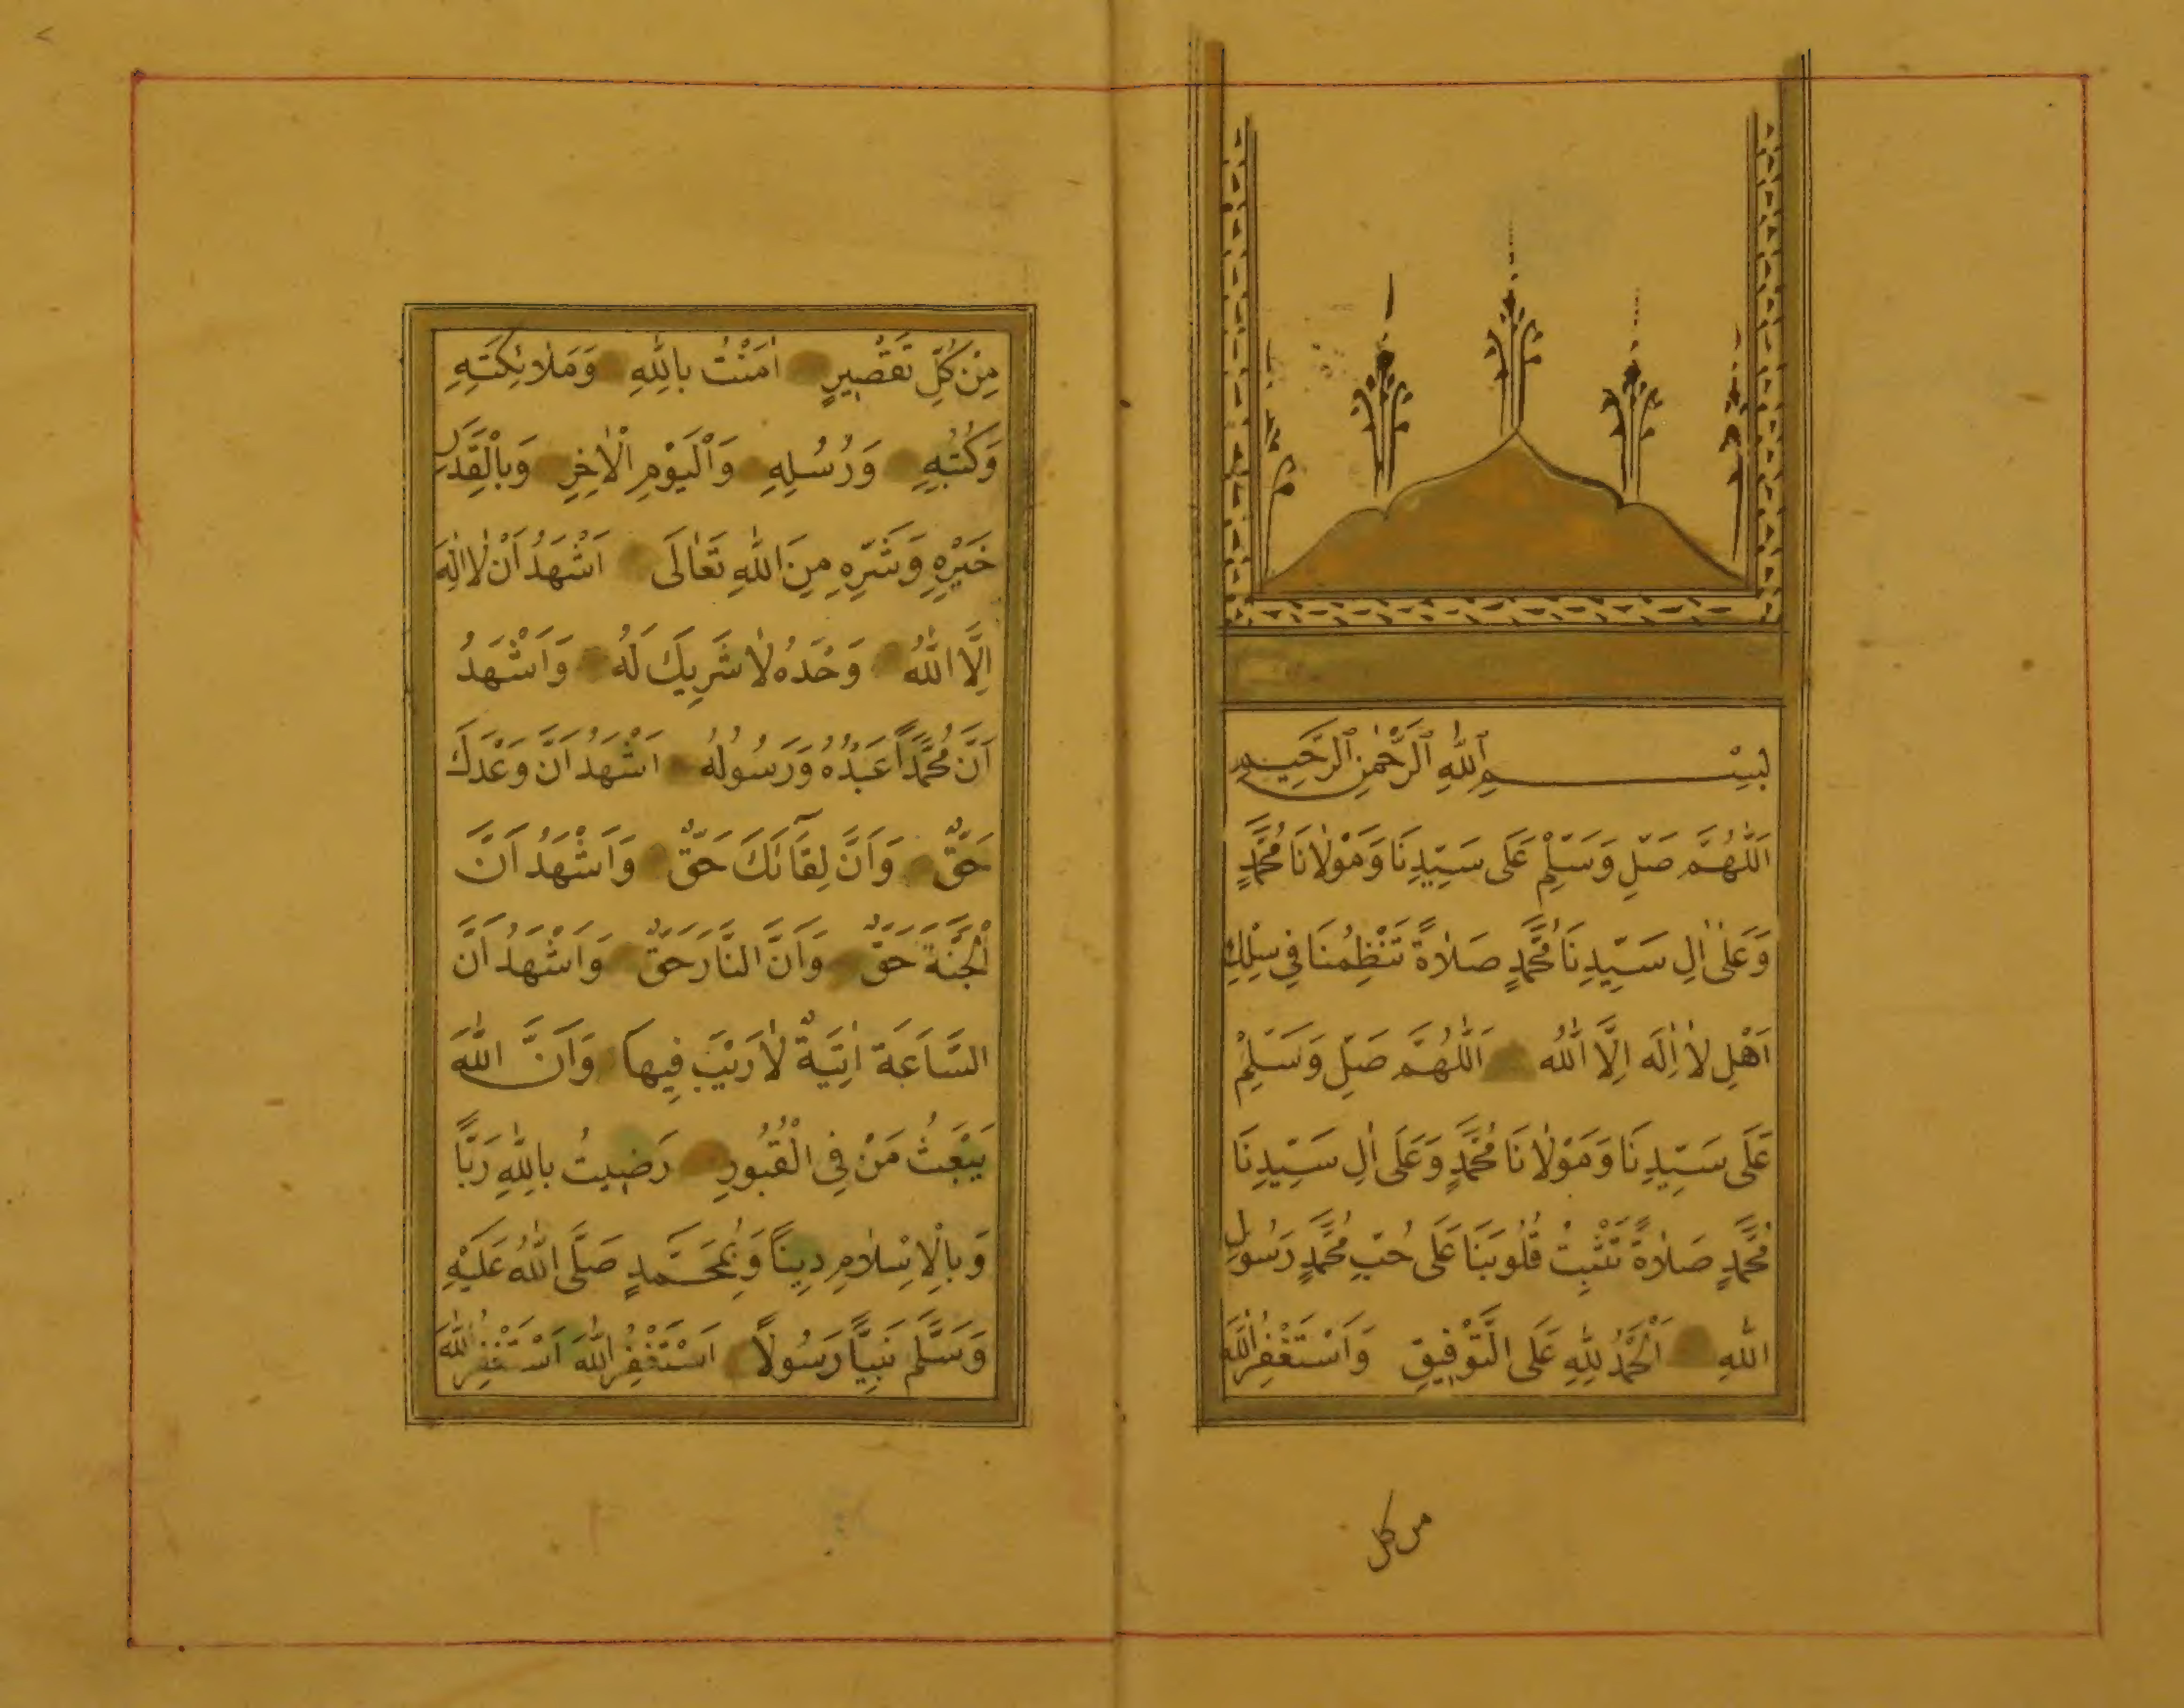 بِسْمِ ٱللّٰهِ ٱلرَّحْمٰنِ ٱلرَّحِيمِ
اَللّٰهُمَّ صَلِّ وَسَلِّمْ عَلَى سَيِّدِنَا وَمَوْلَانَا مُحَمَّدٍ
وَعَلٰى اٰلِ سَيِّدِنَا مُحَمَّدٍ صَلَاةً تَنْظِمُنَا فِي سِلْكِ
اَهْلِ لَا اِلٰهَ اِلَّا اللّٰهُ اَللّٰهُمَّ صَلِّ وَسَلِّمْ
عَلَى سَيِّدِنَا وَمَوْلَانَا مُحَمَّدٍ وَعَلَى اٰلِ سَيِّدِنَا
مُحَمَّدٍ صَلَاةً تُثَبِّتُ قُلُوبَنَا عَلَى حُبِّ مُحَمَّدٍ رَسُولِ
اللّٰهِ اَلْحَمْدُ لِلّٰهِ عَلَى التَّوْفِيقِ وَاَسْتَغْفِرُ اللّٰهَ
من كل
مِنْ كُلِّ تَقْصِيرٍ اٰمَنْتُ بِاللّٰهِ وَمَلَائِكَتِهِ
وَكُتُبِهِ وَرُسُلِهِ وَالْيَوْمِ الْاٰخِرِ وَبِالْقَدَرِ
خَيْرِهِ وَشَرِّهِ مِنَ اللّٰهِ تَعَالَى اَشْهَدُ اَنْ لَا اِلٰهَ
اِلَّا اللّٰهُ وَحْدَهُ لَا شَرِيكَ لَهُ وَاَشْهَدُ
اَنَّ مُحَمَّدًا عَبْدُهُ وَرَسُولُهُ اَشْهَدُ اَنَّ وَعْدَكَ
حَقٌّ وَاَنَّ لِقَآئَكَ حَقٌّ وَاَشْهَدُ اَنَّ
الْجَنَّةَ حَقٌّ وَاَنَّ النَّارَ حَقٌّ وَاَشْهَدُ اَنَّ
السَّاعَةَ اٰتِيَةٌ لَا رَيْبَ فِيهَا وَاَنَّ اللّٰهَ
يَبْعَثُ مَنْ فِي الْقُبُورِ رَضِيتُ بِاللّٰهِ رَبًّا
وَبِالْاِسْلَامِ دِينًا وَبِمُحَمَّدٍ صَلَّى اللّٰهُ عَلَيْهِ
وَسَلَّمَ نَبِيًّا رَسُولًا اَسْتَغْفِرُ اللّٰهَ اَسْتَغْفِرُ اللّٰهَ